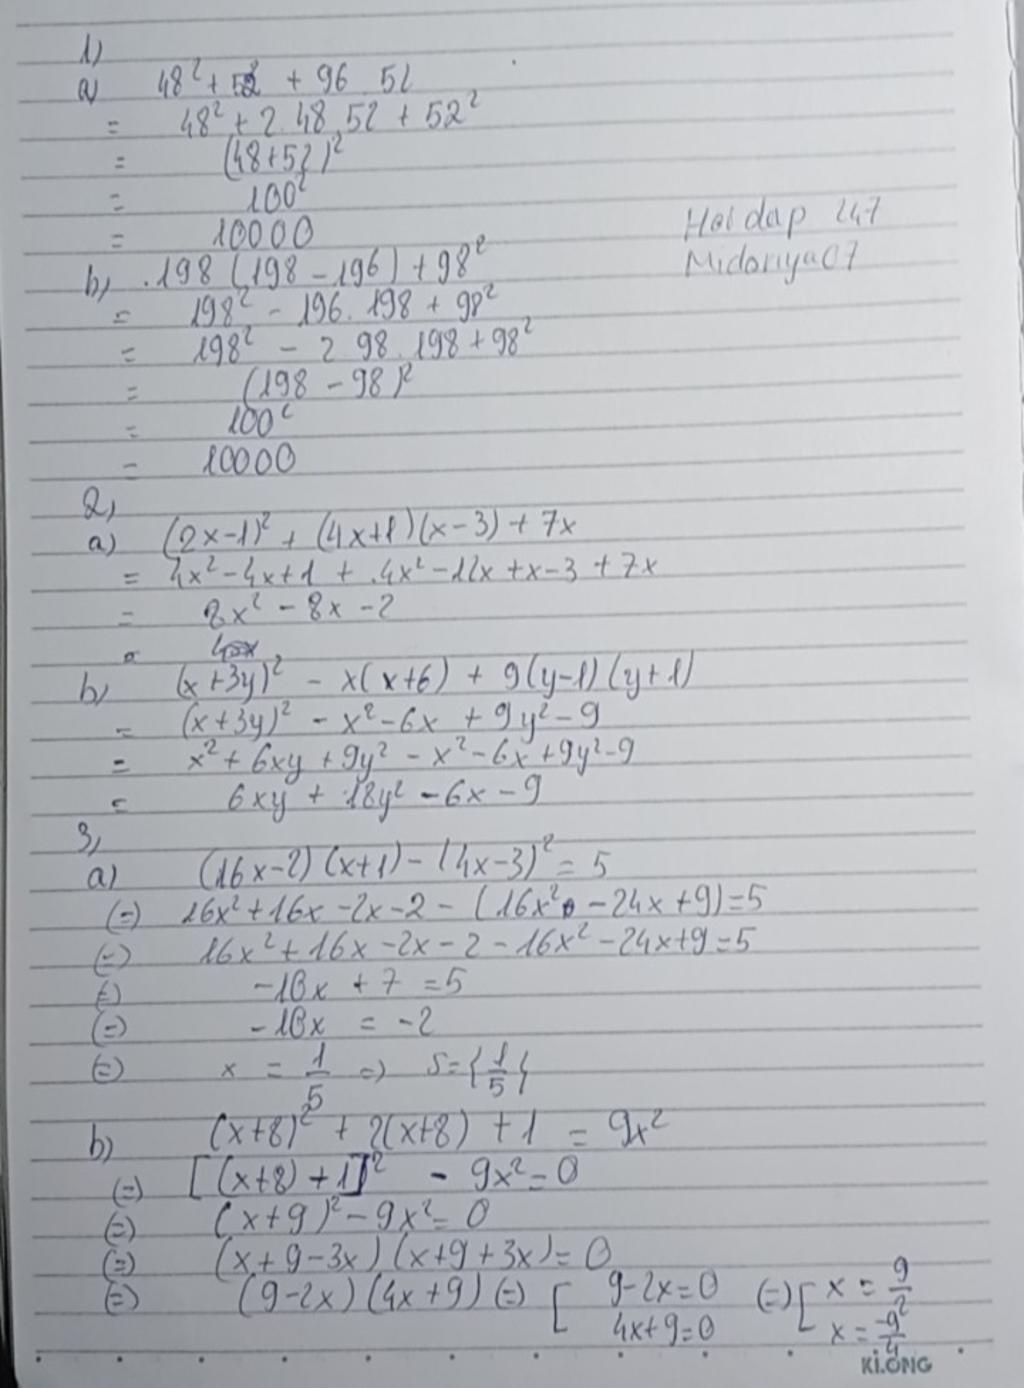 1)
a) 48² + 52² + 96 . 52
= 48² + 2 . 48 . 52 + 52²
= (48+52)²
= 100²
= 10000
Hoidap 247
Midoriya07
b) 198 (198 - 196) + 98²
= 198² - 196 . 198 + 98²
= 198² - 2 98 . 198 + 98²
= (198 - 98)²
= 100²
= 10000
2)
a) (2x-1)² + (4x+1)(x-3) + 7x
= 4x² - 4x + 1 + 4x² - 12x + x - 3 + 7x
= 8x² - 8x - 2
=
b) (x+3y)² - x(x+6) + 9(y-1)(y+1)
= (x+3y)² - x² - 6x + 9y² - 9
= x² + 6xy + 9y² - x² - 6x + 9y² - 9
= 6xy + 18y² - 6x - 9
3)
a) (16x-2)(x+1) - (4x-3)² = 5
(=) 16x² + 16x - 2x - 2 - (16x² - 24x + 9) = 5
(=) 16x² + 16x - 2x - 2 - 16x² - 24x + 9 = 5
(=) -10x + 7 = 5
(=) -10x = -2
(=) x = 1/5 => S = {1/5}
b) (x+8)² + 2(x+8) + 1 = 9x²
(=) [(x+8) + 1]² - 9x² = 0
(=) (x+9)² - 9x² = 0
(=) (x+9-3x)(x+9+3x) = 0
(=) (9-2x)(4x+9) (=) [ 9-2x=0 (=) [ x = 9/2
4x+9=0 x = -9/4
KLONG